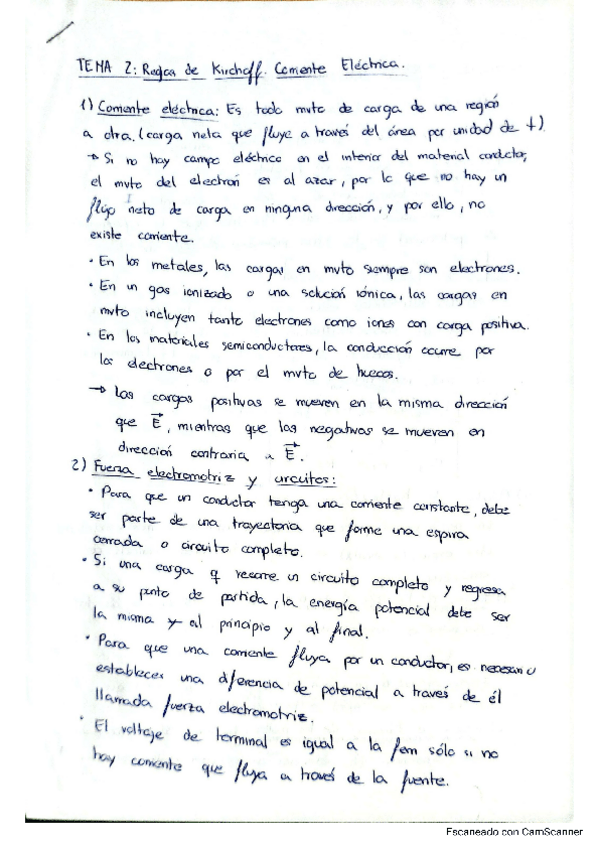 TEMA 2: Reglas de Kirchoff. Corriente Eléctrica.
1) Corriente eléctrica: Es todo mvto de carga de una región
a otra. (carga neta que fluye a través del área por unidad de t)
→ Si no hay campo eléctrico en el interior del material conductor,
el mvto del electrón es al azar, por lo que no hay un
flujo neto de carga en ninguna dirección, y por ello, no
existe corriente.
· En los metales, las cargas en mvto siempre son electrones.
· En un gas ionizado o una solución iónica, las cargas en
mvto incluyen tanto electrones como iones con carga positiva.
· En los materiales semiconductores, la conducción ocurre por
los electrones o por el mvto de huecos.
→ Las cargas positivas se mueven en la misma dirección
que E⃗, mientras que las negativas se mueven en
dirección contraria a E⃗.
2) Fuerza electromotriz y circuitos:
· Para que un conductor tenga una corriente constante, debe
ser parte de una trayectoria que forme una espira
cerrada o circuito completo.
· Si una carga q recorre un circuito completo y regresa
a su punto de partida, la energía potencial debe ser
la misma y al principio y al final.
· Para que una corriente fluya por un conductor, es necesario
establecer una diferencia de potencial a través de él
llamada fuerza electromotriz.
· El voltaje de terminal es igual a la fem sólo si no
hay corriente que fluya a través de la fuente.
Escaneado con CamScanner